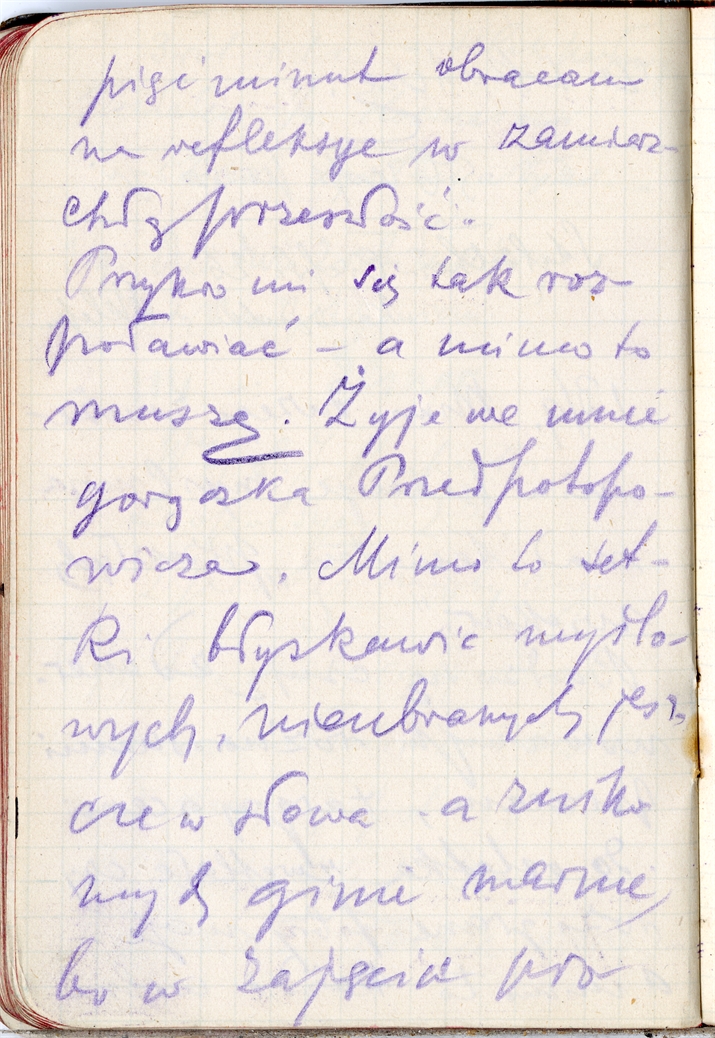 pięć minut obracam
na refleksye w zamierz-
chłą przeszłość.
Przykro mi się tak roz-
prawiać – a mimo to
muszę. Żyje we mnie
gorączka Przedpotopo-
wicza. Mimo to set-
ki błyskawic myślo-
wych, nieubranych jesz-
cze w słowa a
ginie marnie,
bo w zajęciu pro-